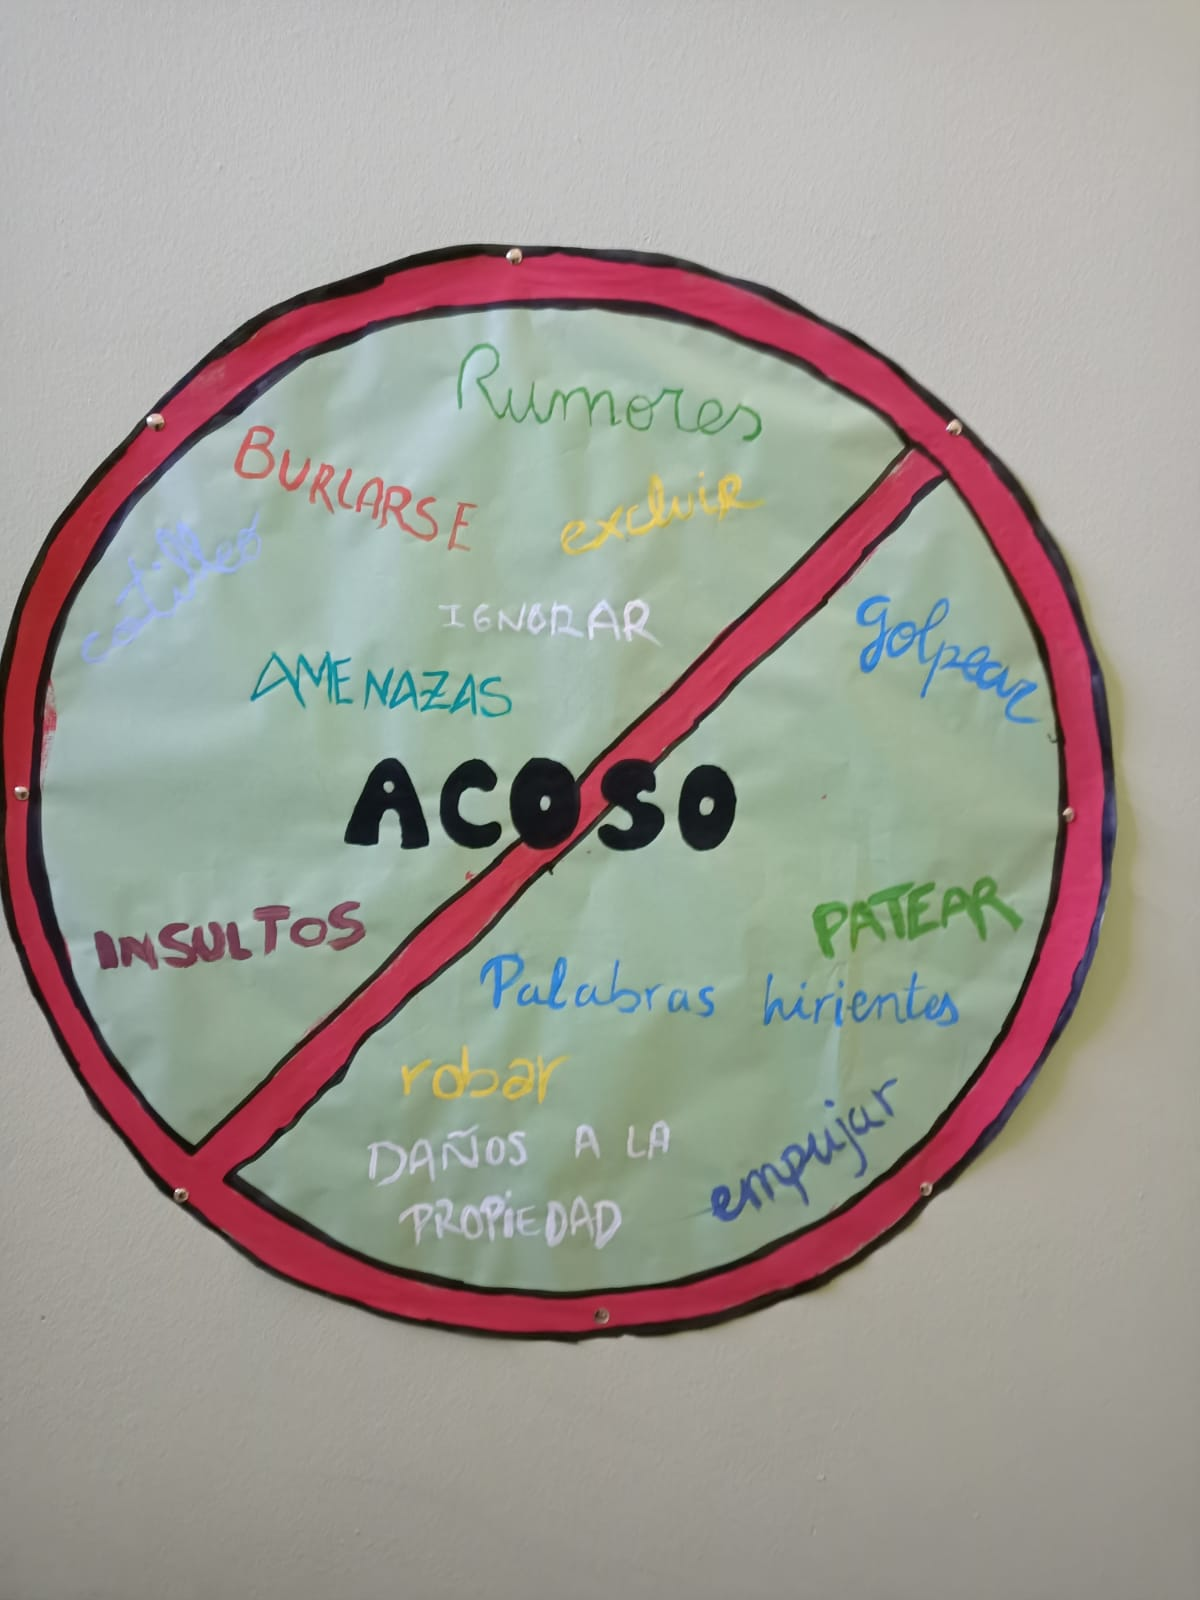 Rumores
BURLARSE
excluir
cotilleo
IGNORAR
golpear
AMENAZAS
ACOSO
INSULTOS
PATEAR
Palabras hirientes
robar
DAÑOS A LA
PROPIEDAD
empujar